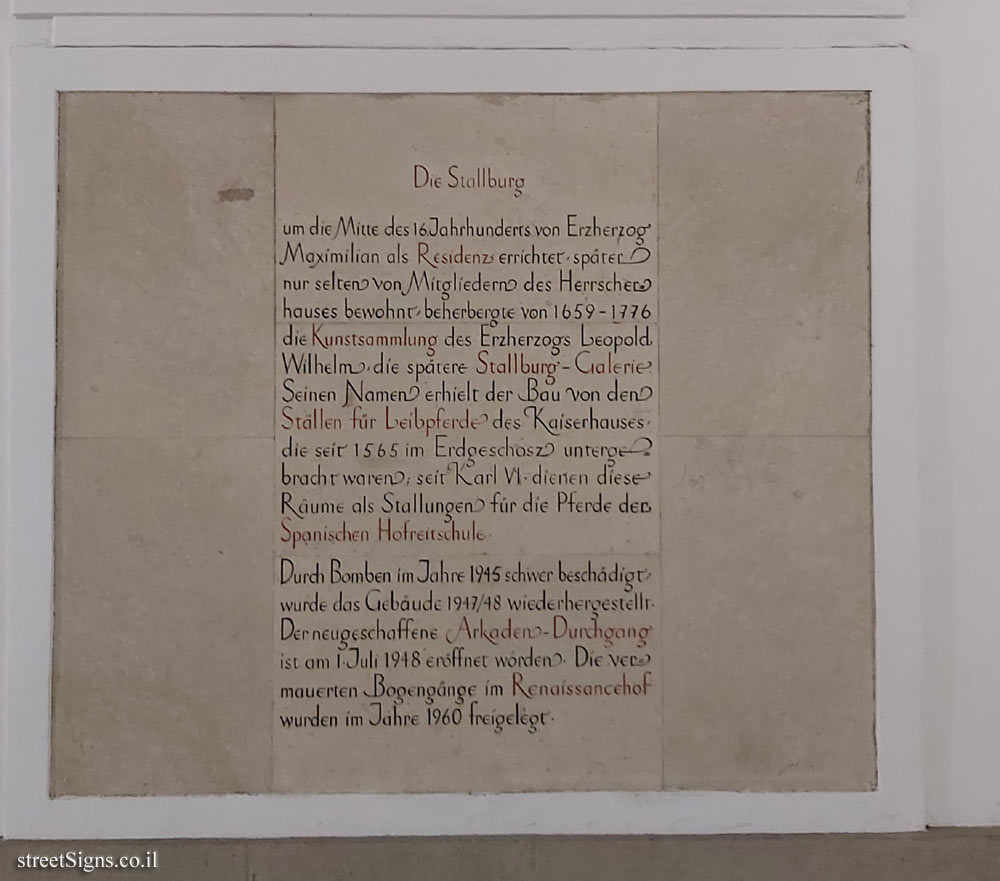 Die Stallburg
um die Mitte des 16. Jahrhunderts von Erzherzog
Maximilian als Residenz errichtet, später
nur selten von Mitgliedern des Herrscher
hauses bewohnt, beherbergte von 1659-1776
die Kunstsammlung des Erzherzogs Leopold
Wilhelm, die spätere Stallburg-Galerie.
Seinen Namen erhielt der Bau von den
Ställen für Leibpferde des Kaiserhauses,
die seit 1565 im Erdgeschosz unterge-
bracht waren; seit Karl VI. dienen diese
Räume als Stallungen für die Pferde der
Spanischen Hofreitschule.
Durch Bomben im Jahre 1945 schwer beschädigt,
wurde das Gebäude 1947/48 wiederhergestellt.
Der neugeschaffene Arkaden-Durchgang
ist am 1. Juli 1948 eröffnet worden. Die ver
mauerten Bogengänge im Renaissancehof
wurden im Jahre 1960 freigelegt.
streetSigns.co.il